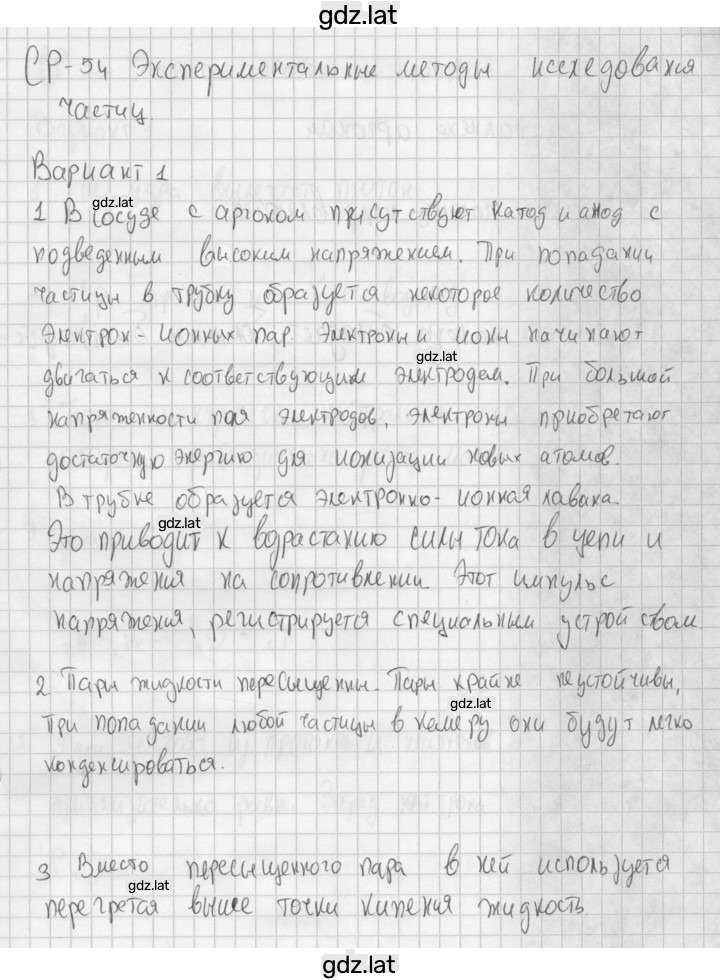 gdz.lat
СР-54 Экспериментальные методы исследования
частиц.
Вариант 1
gdz.lat
1 В сосуде с аргоном присутствуют катод и анод с
подведенным высоким напряжением. При попадании
частицы в трубку образуется некоторое количество
электрон-ионных пар. Электроны и ионы начинают
gdz.lat
двигаться к соответствующим электродам. При большой
напряженности поля электродов, электроны приобретают
достаточную энергию для ионизации новых атомов.
В трубке образуется электронно-ионная лавина.
gdz.lat
Это приводит к возрастанию силы тока в цепи и
напряжения на сопротивлении. Этот импульс
напряжения, регистрируется специальным устройством.
2 Пары жидкости пересыщенны. Пары крайне неустойчивы,
gdz.lat
При попадании любой частицы в камеру они будут легко
конденсироваться.
3 Вместо пересыщенного пара в ней используется
gdz.lat
перегретая выше точки кипения жидкость
gdz.lat